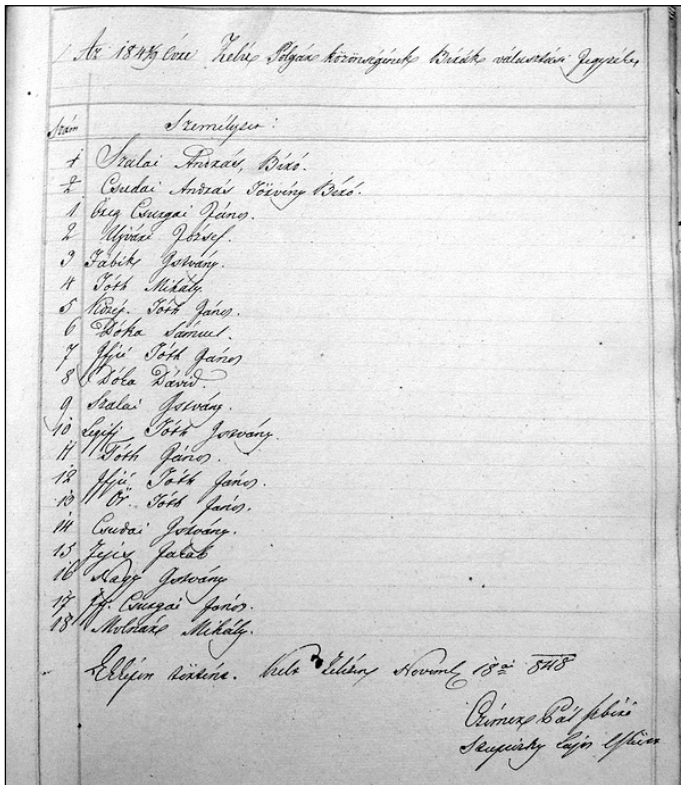 Az 184 8/9 Évre Polgár közönségének Birák választási
Szám Személyzet:
1 Szalai András, Biró.
2 Csudai András Törvény Biró.
1 Öreg Csuzgai János.
2 Ujvári József.
3 Fábik Istvány.
4 Tóth Mihály.
5 Közép. Tóth János.
6 Dóka Sámuel.
7 Ifjú Tóth János
8 Dóka Dávid.
9 Szalai Istvány.
10 Legifj Tóth Istvány.
11 Tóth János.
12 Ifjú Tóth János.
13 Tóth János.
14 Csudai Istvány.
15 Jakab
16 Nagy Istvány
17 If. Csuzgai János.
18 Molnár Mihály.
történt. Kelt Novemb 18ai 848
Pál
Lajos